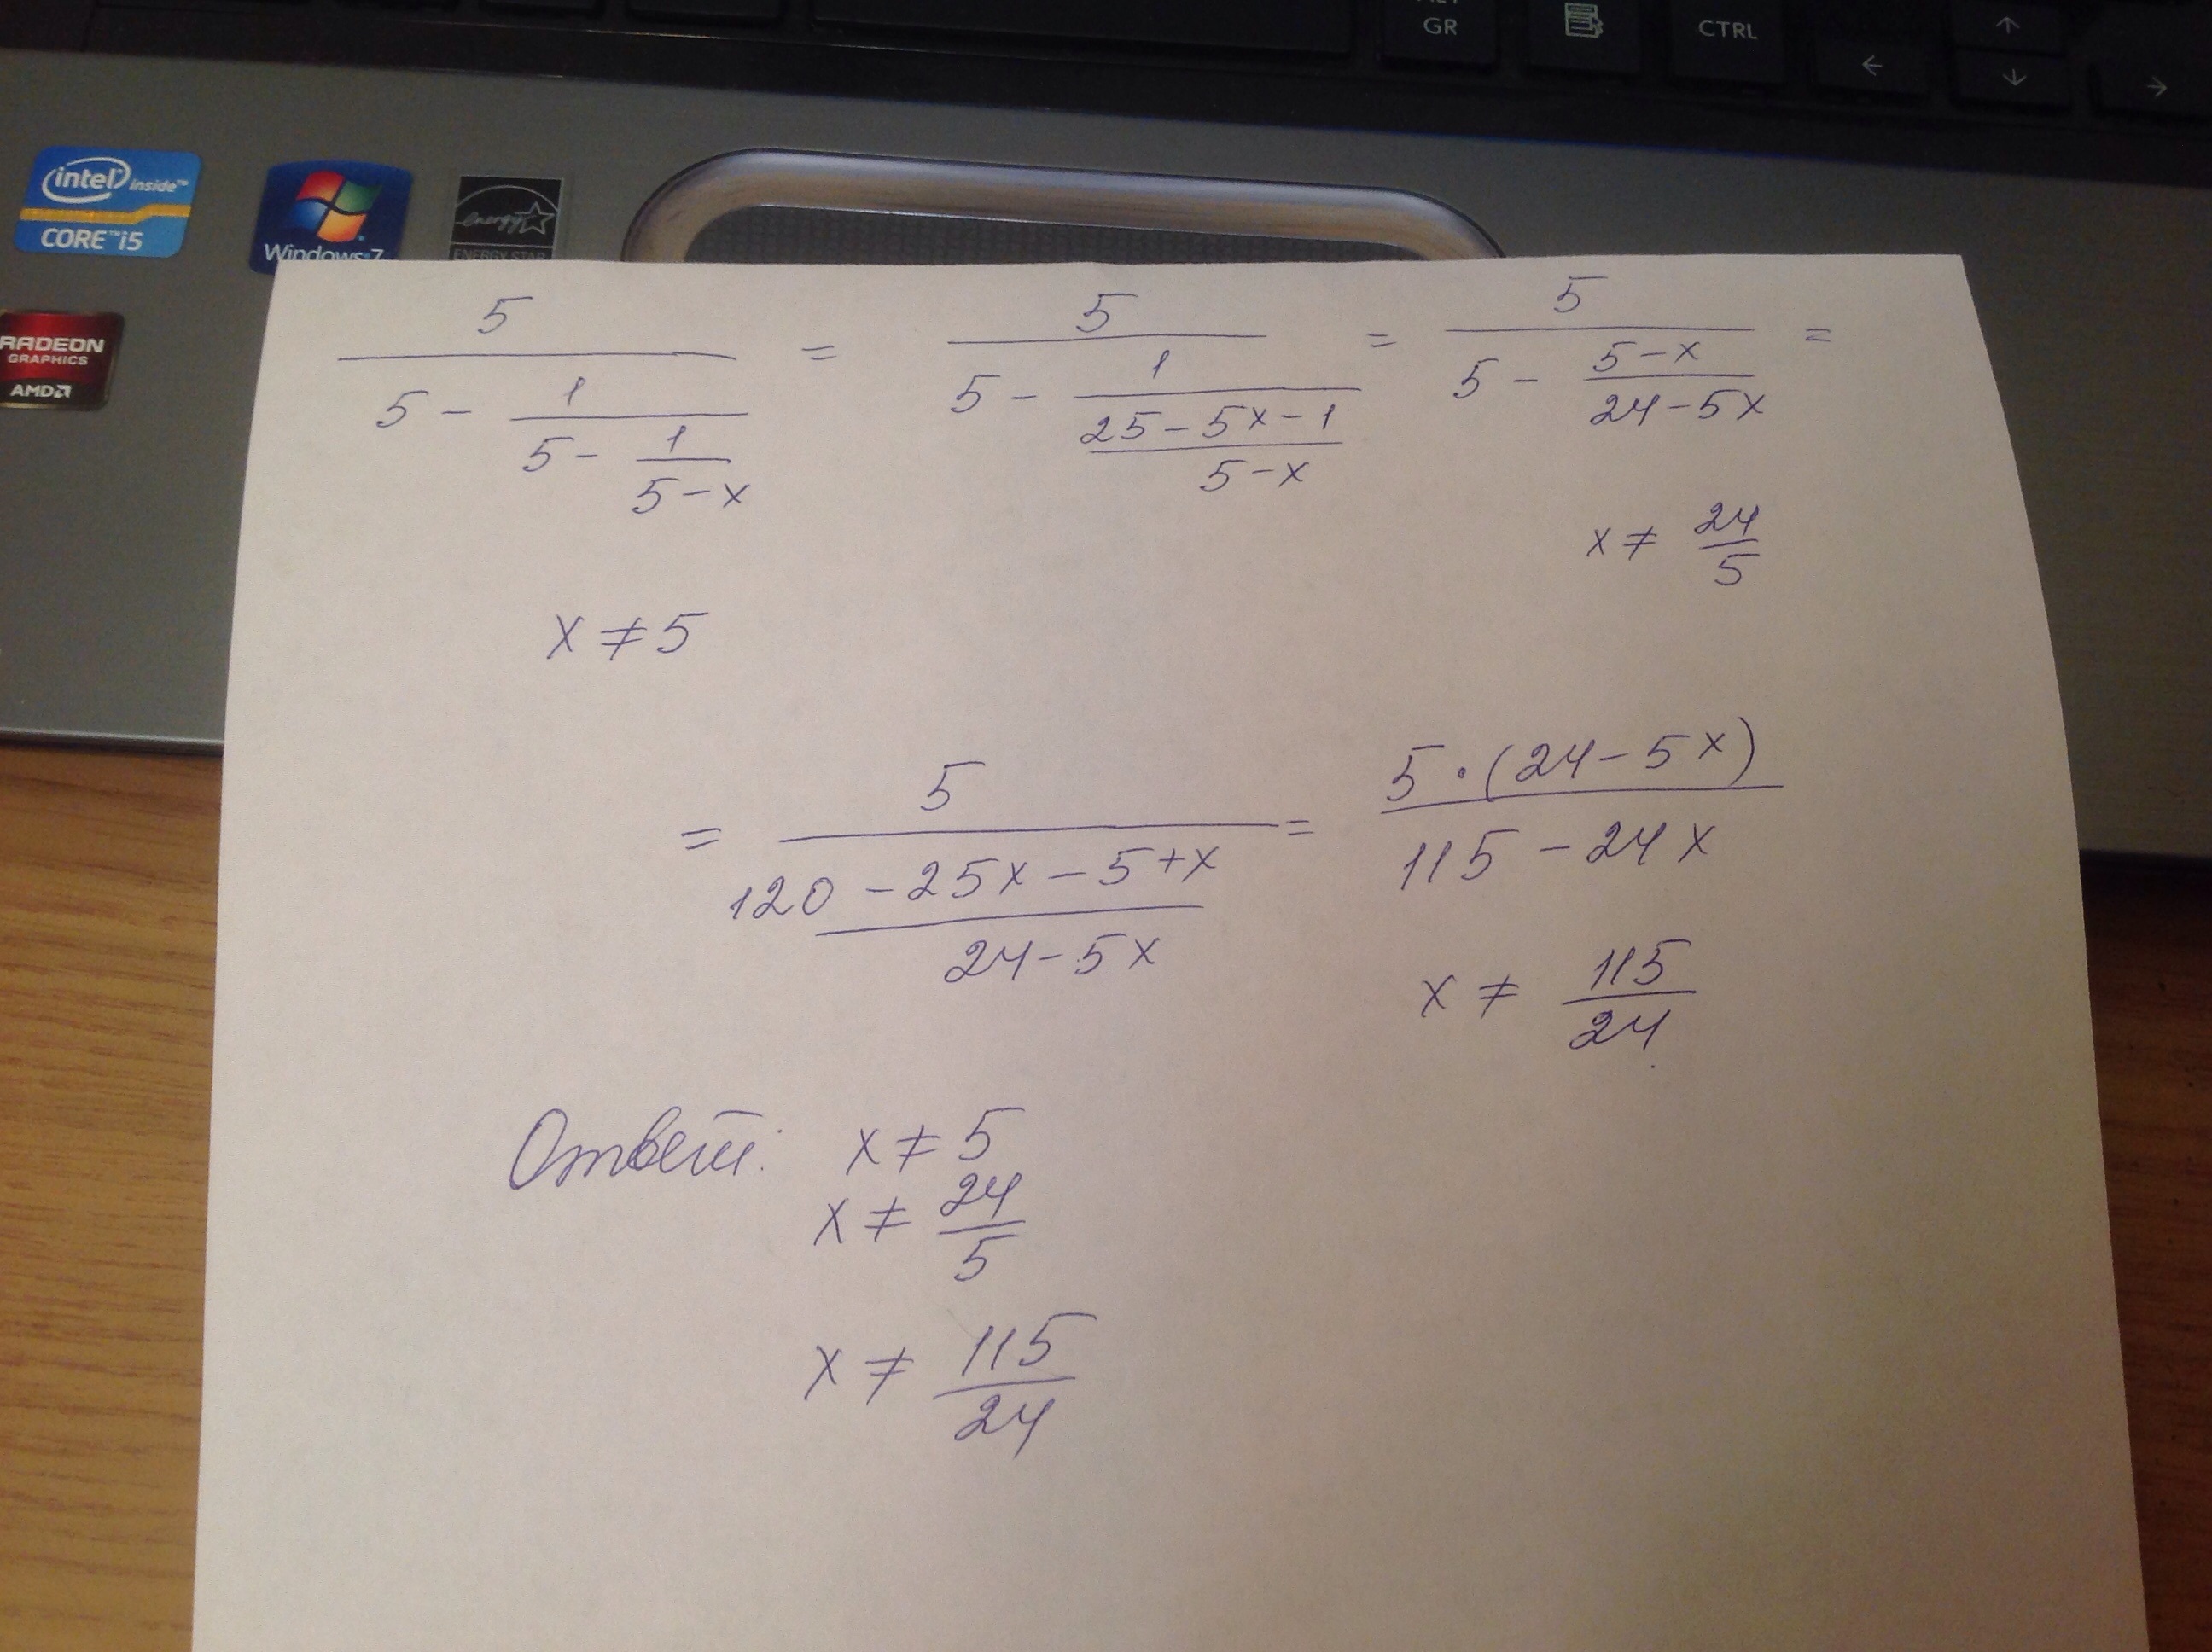 ALT GR
CTRL
← ↑ ↓ →
intel inside™
CORE™ i5
Windows® 7
energy
ENERGY STAR
RADEON
GRAPHICS
AMD
5/(5 - 1/(5 - 1/(5-x))) = 5/(5 - 1/((25-5x-1)/(5-x))) = 5/(5 - (5-x)/(24-5x)) =
x ≠ 24/5
x ≠ 5
= 5/((120-25x-5+x)/(24-5x)) = 5·(24-5x)/(115-24x)
x ≠ 115/24
Ответ: x ≠ 5
x ≠ 24/5
x ≠ 115/24